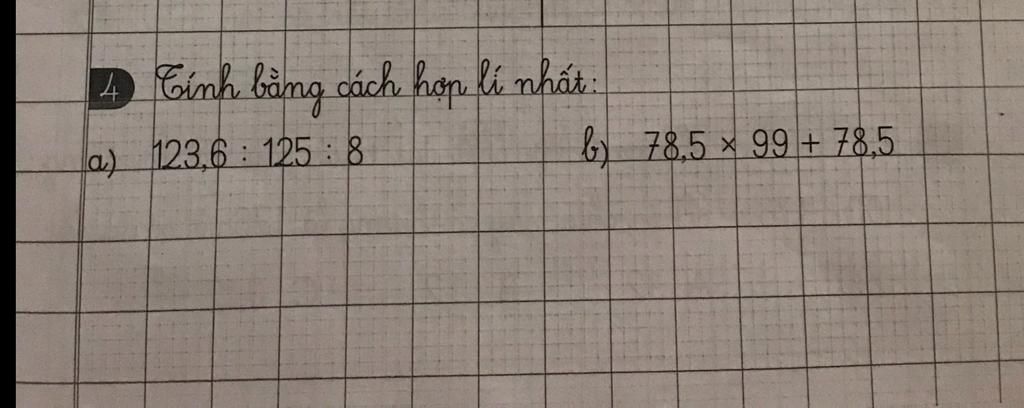 4 Tính bằng cách hợp lí nhất:
a) 123,6 : 125 : 8 b) 78,5 × 99 + 78,5